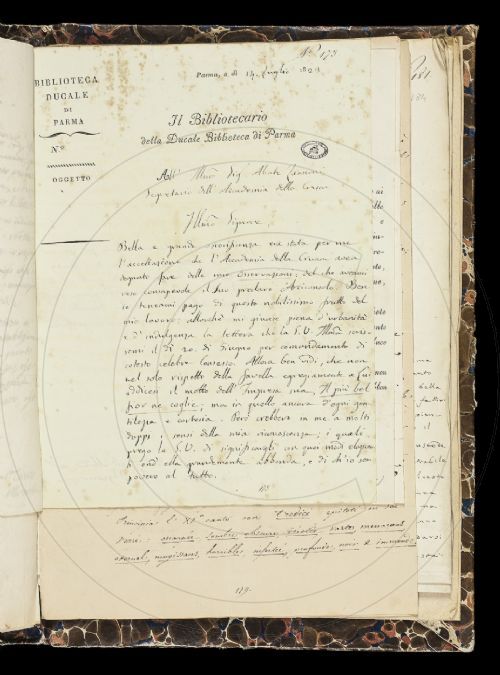 N.º 173
Parma, a dì 14. Luglio 182
BIBLIOTECA
DUCALE
DI
PARMA
N.º
OGGETTO
Il Bibliotecario
della Ducale Biblioteca di Parma
All' Illmo Sig. Abate Zannoni
Segretario dell'Accademia della Crusca
Illmo Signore,
Bella e grande ricompensa era stata per me
l'accettazione che l'Accademia della Crusca avea
degnato fare delle mie Osservazioni; del che avevami
reso consapevole il suo preclaro Arciconsolo. Ben
io teneami pago di questo nobilissimo frutto del
mio lavoro; allorchè mi giunse piena d'urbanità
e d'indulgenza la lettera che la S.V. Illma scris-
semi il dì 20. di Giugno per comandamento di
cotesto celebre Consesso. Allora ben vidi, che non
nel solo rispetto della favella egregiamente a Lui
addicesi il motto dell'Impresa sua, Il più bel
fior ne coglie; ma in quello ancora d'ogni gen-
tilezza e cortesia. Però crebbero in me a molti
doppj i sensi della mia riconoscenza; i quali
prego la S.V. di significargli con quei modi
ond'ella grandemente abbonda, e di ch'io son
povero al tutto.
canto con tredici epiteti
oscuro
orribile
179
181